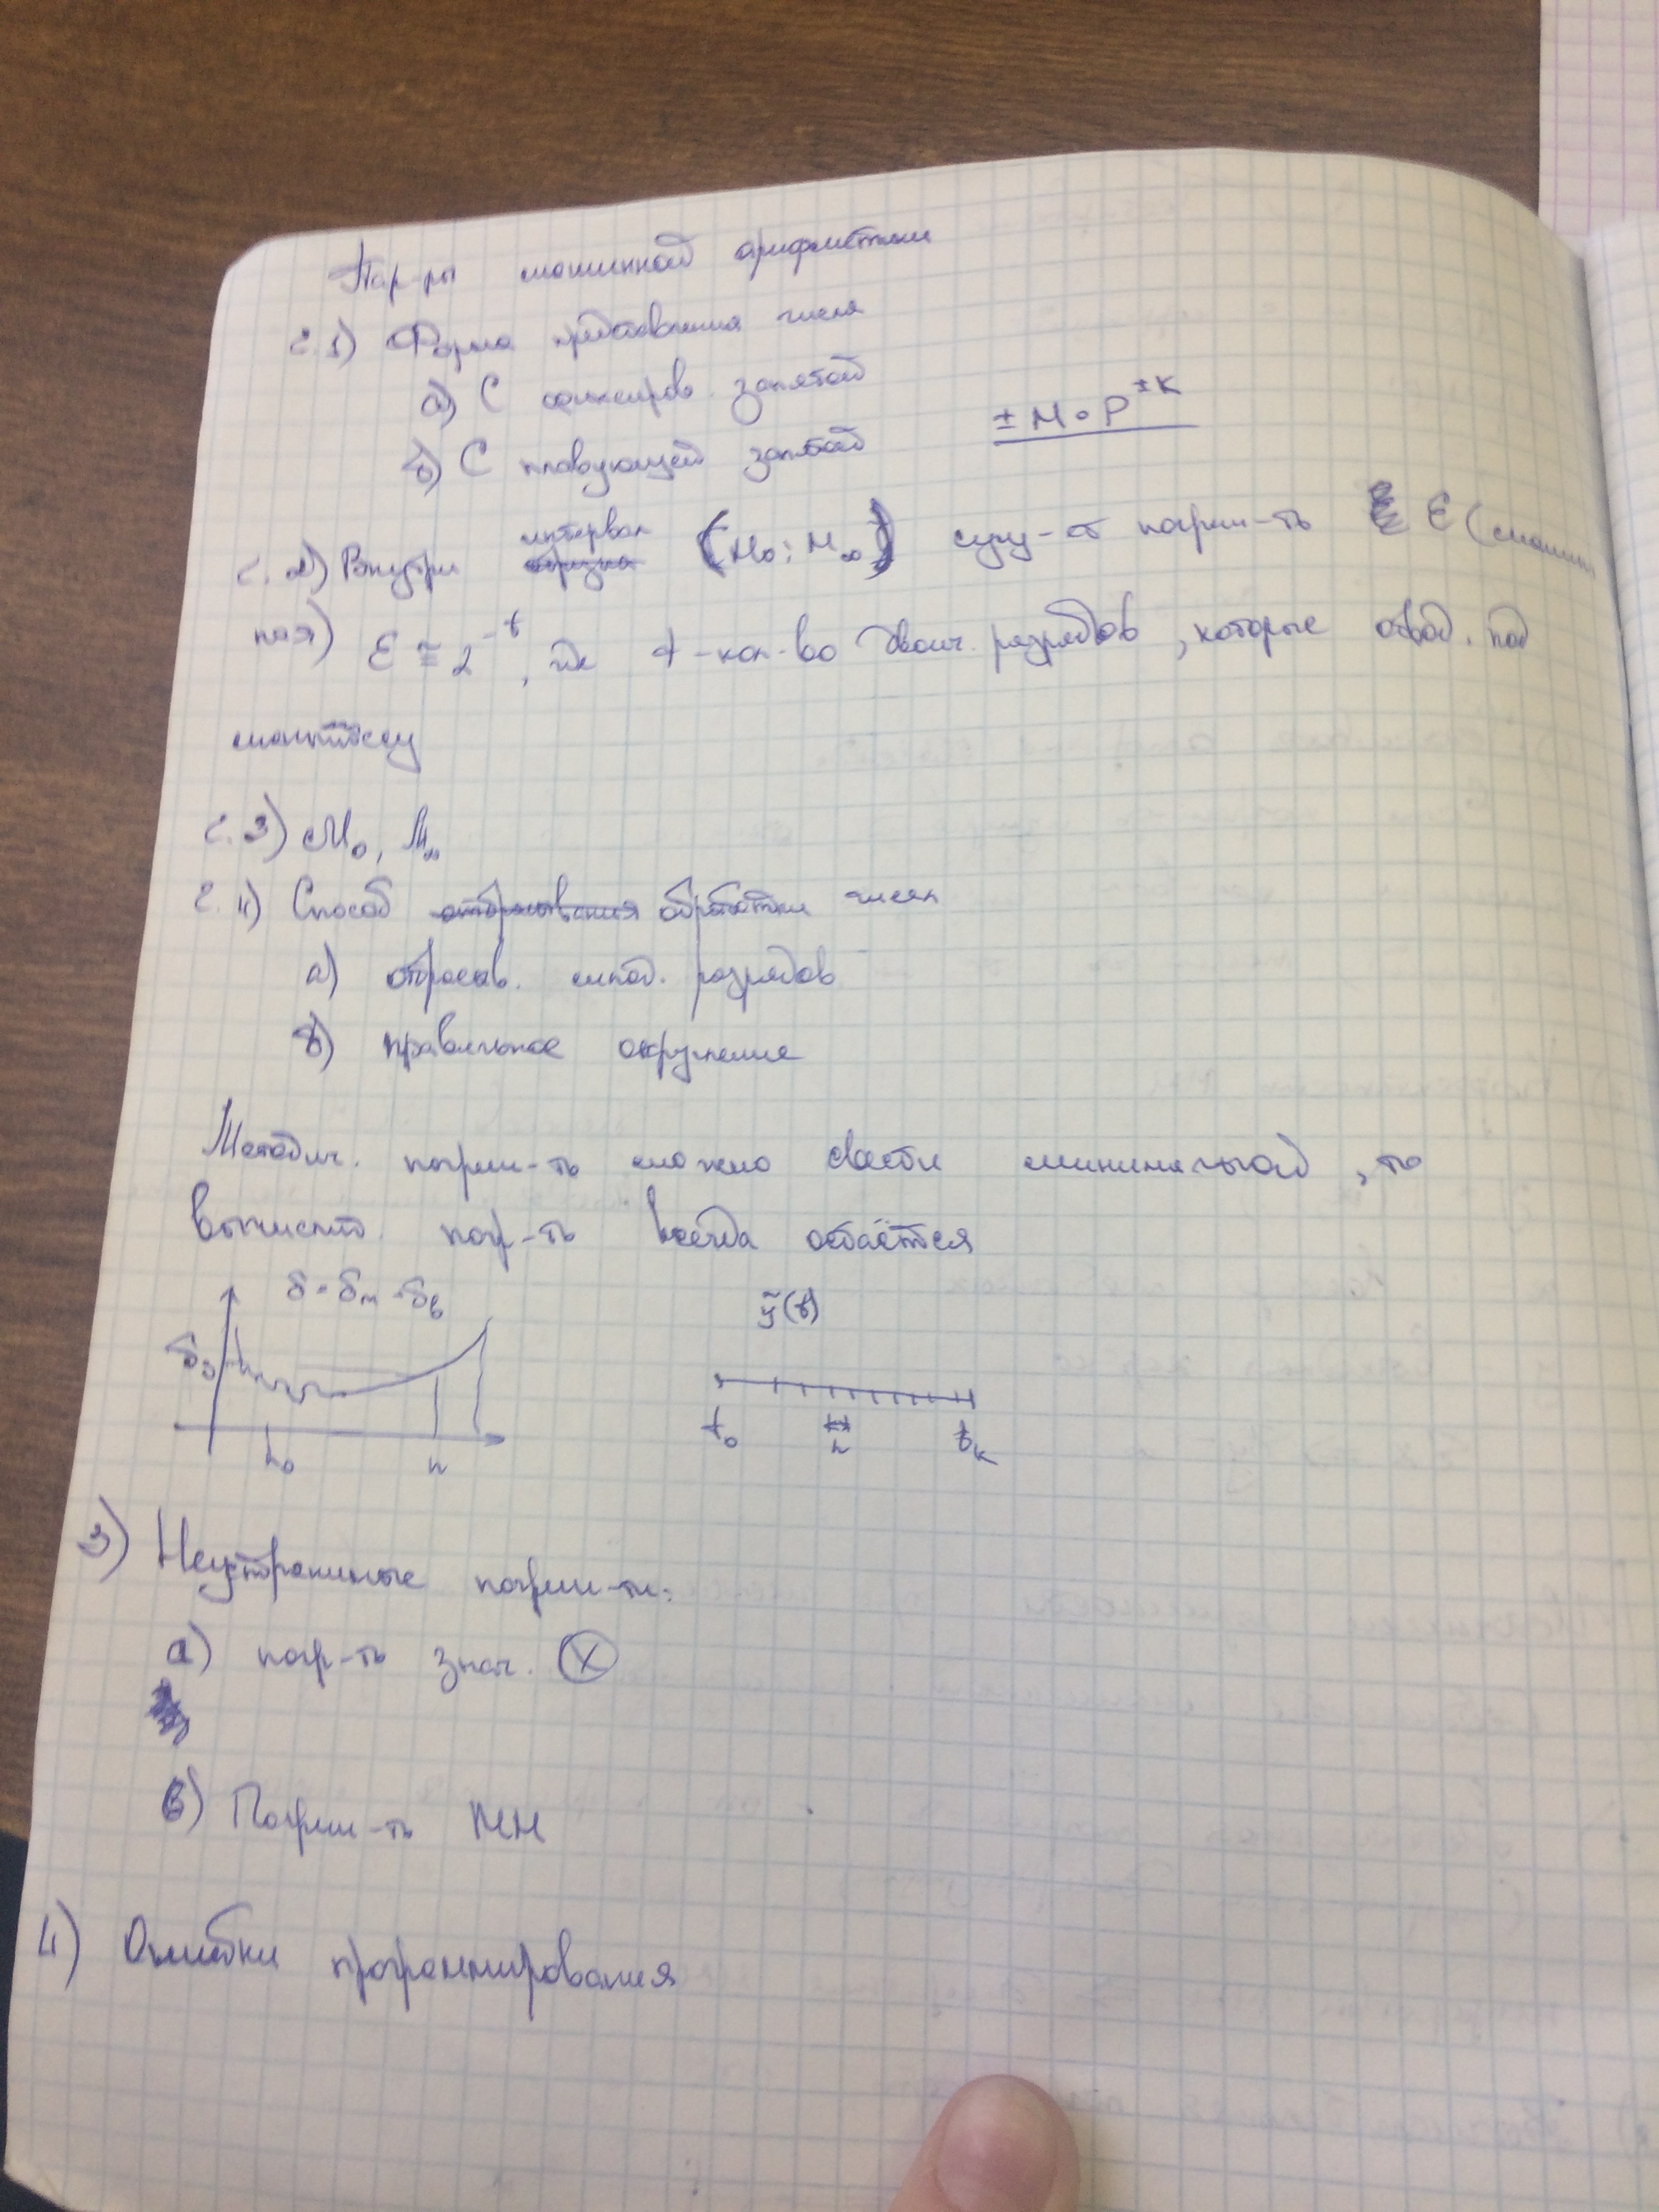 Пар-ры машинной арифметики
2.1) Форма представления числа
а) С фиксиров. запятой
б) С плавующей запятой ±М∘Р^±К
2.2) Внутри интервал (М₀; М∞) сущ-ет погреш-ть Ɛ (машин
ная) Ɛ ≅ 2^-t, где t-кол-во двоич. разрядов, которые отвод. под
мантиссу
2.3) М₀, М∞
2.4) Способ обработки чисел
а) отбросыв. млад. разрядов
б) правильное округление
Методич. погреш-ть можно свести минимальной, то
вычислит. погр-ть всегда остаётся
δ = δм · δв
ỹ(t)
δ₀
t₀ h tк
h₀ h
3) Неустранимые погреш-ти:
а) погр-ть знач. Х
в) Погреш-ть ММ
4) Ошибки программирования